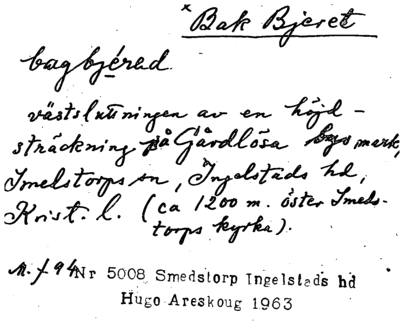 × Bak Bjeret
bagbjérad
västsluttningen av en höjd-
sträckning på Gårdlösa bys mark,
Smelstorps sn, Ingelstads hd,
Krist. l. (ca 1200 m. öster Smeds-
torps kyrka).
Nr 5008 Smedstorp Ingelstads hd
Hugo Areskoug 1963